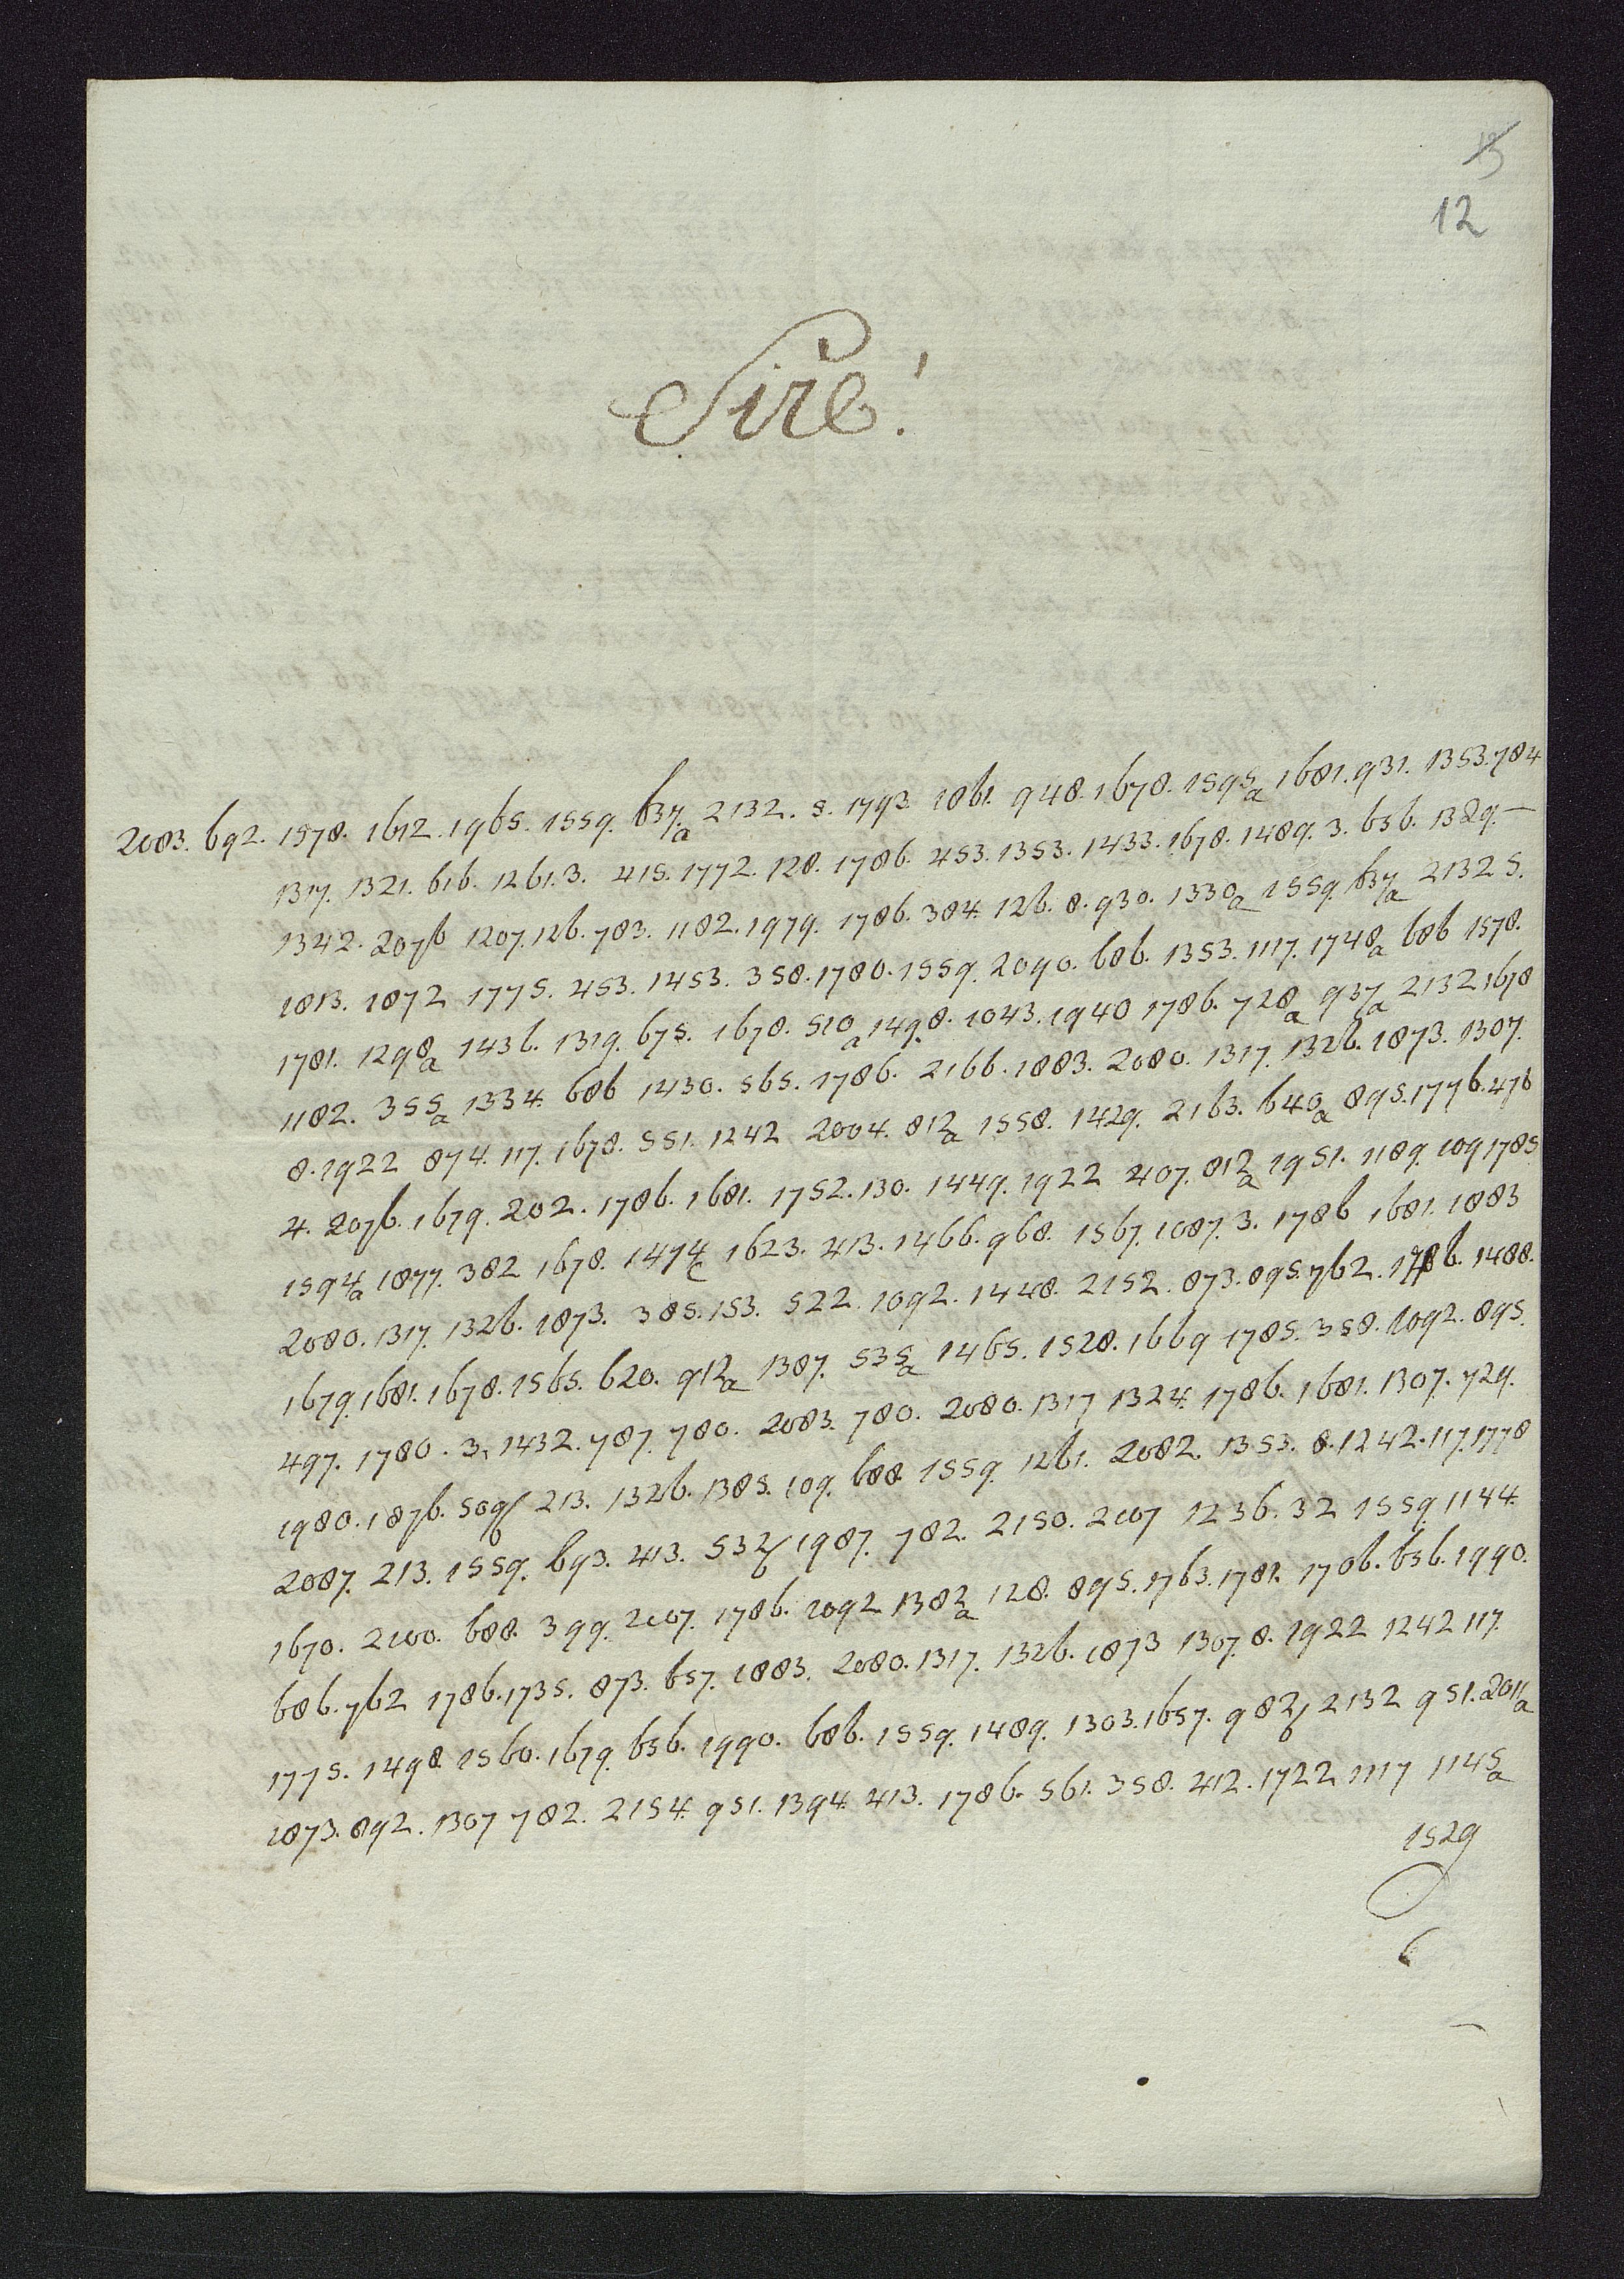 13
12
Sire!
2083. 692. 1578. 1612. 1965. 1559. 637a 2132. 5. 1793. 1861. 948. 1678. 1595a 1681. 931. 1353. 784
1317. 1321. 616. 1261. 3. 415. 1772. 128. 1786. 453. 1353. 1433. 1678. 1489. 3. 656. 1389. —
1342. 2076 1207. 126. 783. 1182. 1979. 1786. 384. 126. 8. 930. 1330a 1559. 637a 2132 5.
1813. 1872 1775. 453. 1453. 358. 1780. 1559. 2090. 686. 1353. 1117. 1748a 686 1578.
1781. 1298a 1436. 1319. 675. 1678. 510a 1498. 1043. 1940 1786. 728a 937a 2132 1678
1182. 355a 1334. 686 1430. 565. 1786. 2166. 1883. 2080. 1317. 1326. 1873. 1307.
8. 1922 874. 117. 1678. 551. 1242 2004. 812a 1558. 1429. 2163. 640a 895. 1776. 476
4. 2076. 1679. 202. 1786. 1681. 1752. 130. 1449. 1922 407. 812a 1951. 1189. 109 1785
1594a 1877. 382 1678. 1474c 1623. 413. 1466. 968. 1567. 1087. 3. 1786 1681. 1883
2080. 1317. 1326. 1873. 385. 153. 522. 1092. 1448. 2152. 873. 895. 762. 1786. 1488.
1679. 1681. 1678. 1565. 620. 912a 1387. 535a 1465. 1528. 1669 1785. 358. 1092. 895.
497. 1780. 3. 1432. 787. 780. 2083. 780. 2080. 1317 1324. 1786. 1681. 1307. 729.
1980. 1876. 509b 213. 1326. 1385. 109. 688. 1559. 1261. 2082. 1353. 8. 1242. 117. 1778
2087. 213. 1559. 693. 413. 532b 1987. 782. 2150. 2007 1236. 32 1559 1144.
1670. 2100. 688. 399. 2007. 1786. 1092 1382a 128. 895. 1763. 1781. 1706. 656. 1990.
686. 762 1786. 1735. 873. 657. 1883. 2080. 1317. 1326. 1873 1307. 8. 1922 1242 117.
1775. 1498. 1560. 1679. 656. 1990. 686. 1559. 1489. 1303. 1657. 982b 2132 951. 2011a
1873. 892. 1307 782. 2154. 951. 1394. 413. 1786. 561. 358. 412. 1722 1117 1145a
1529